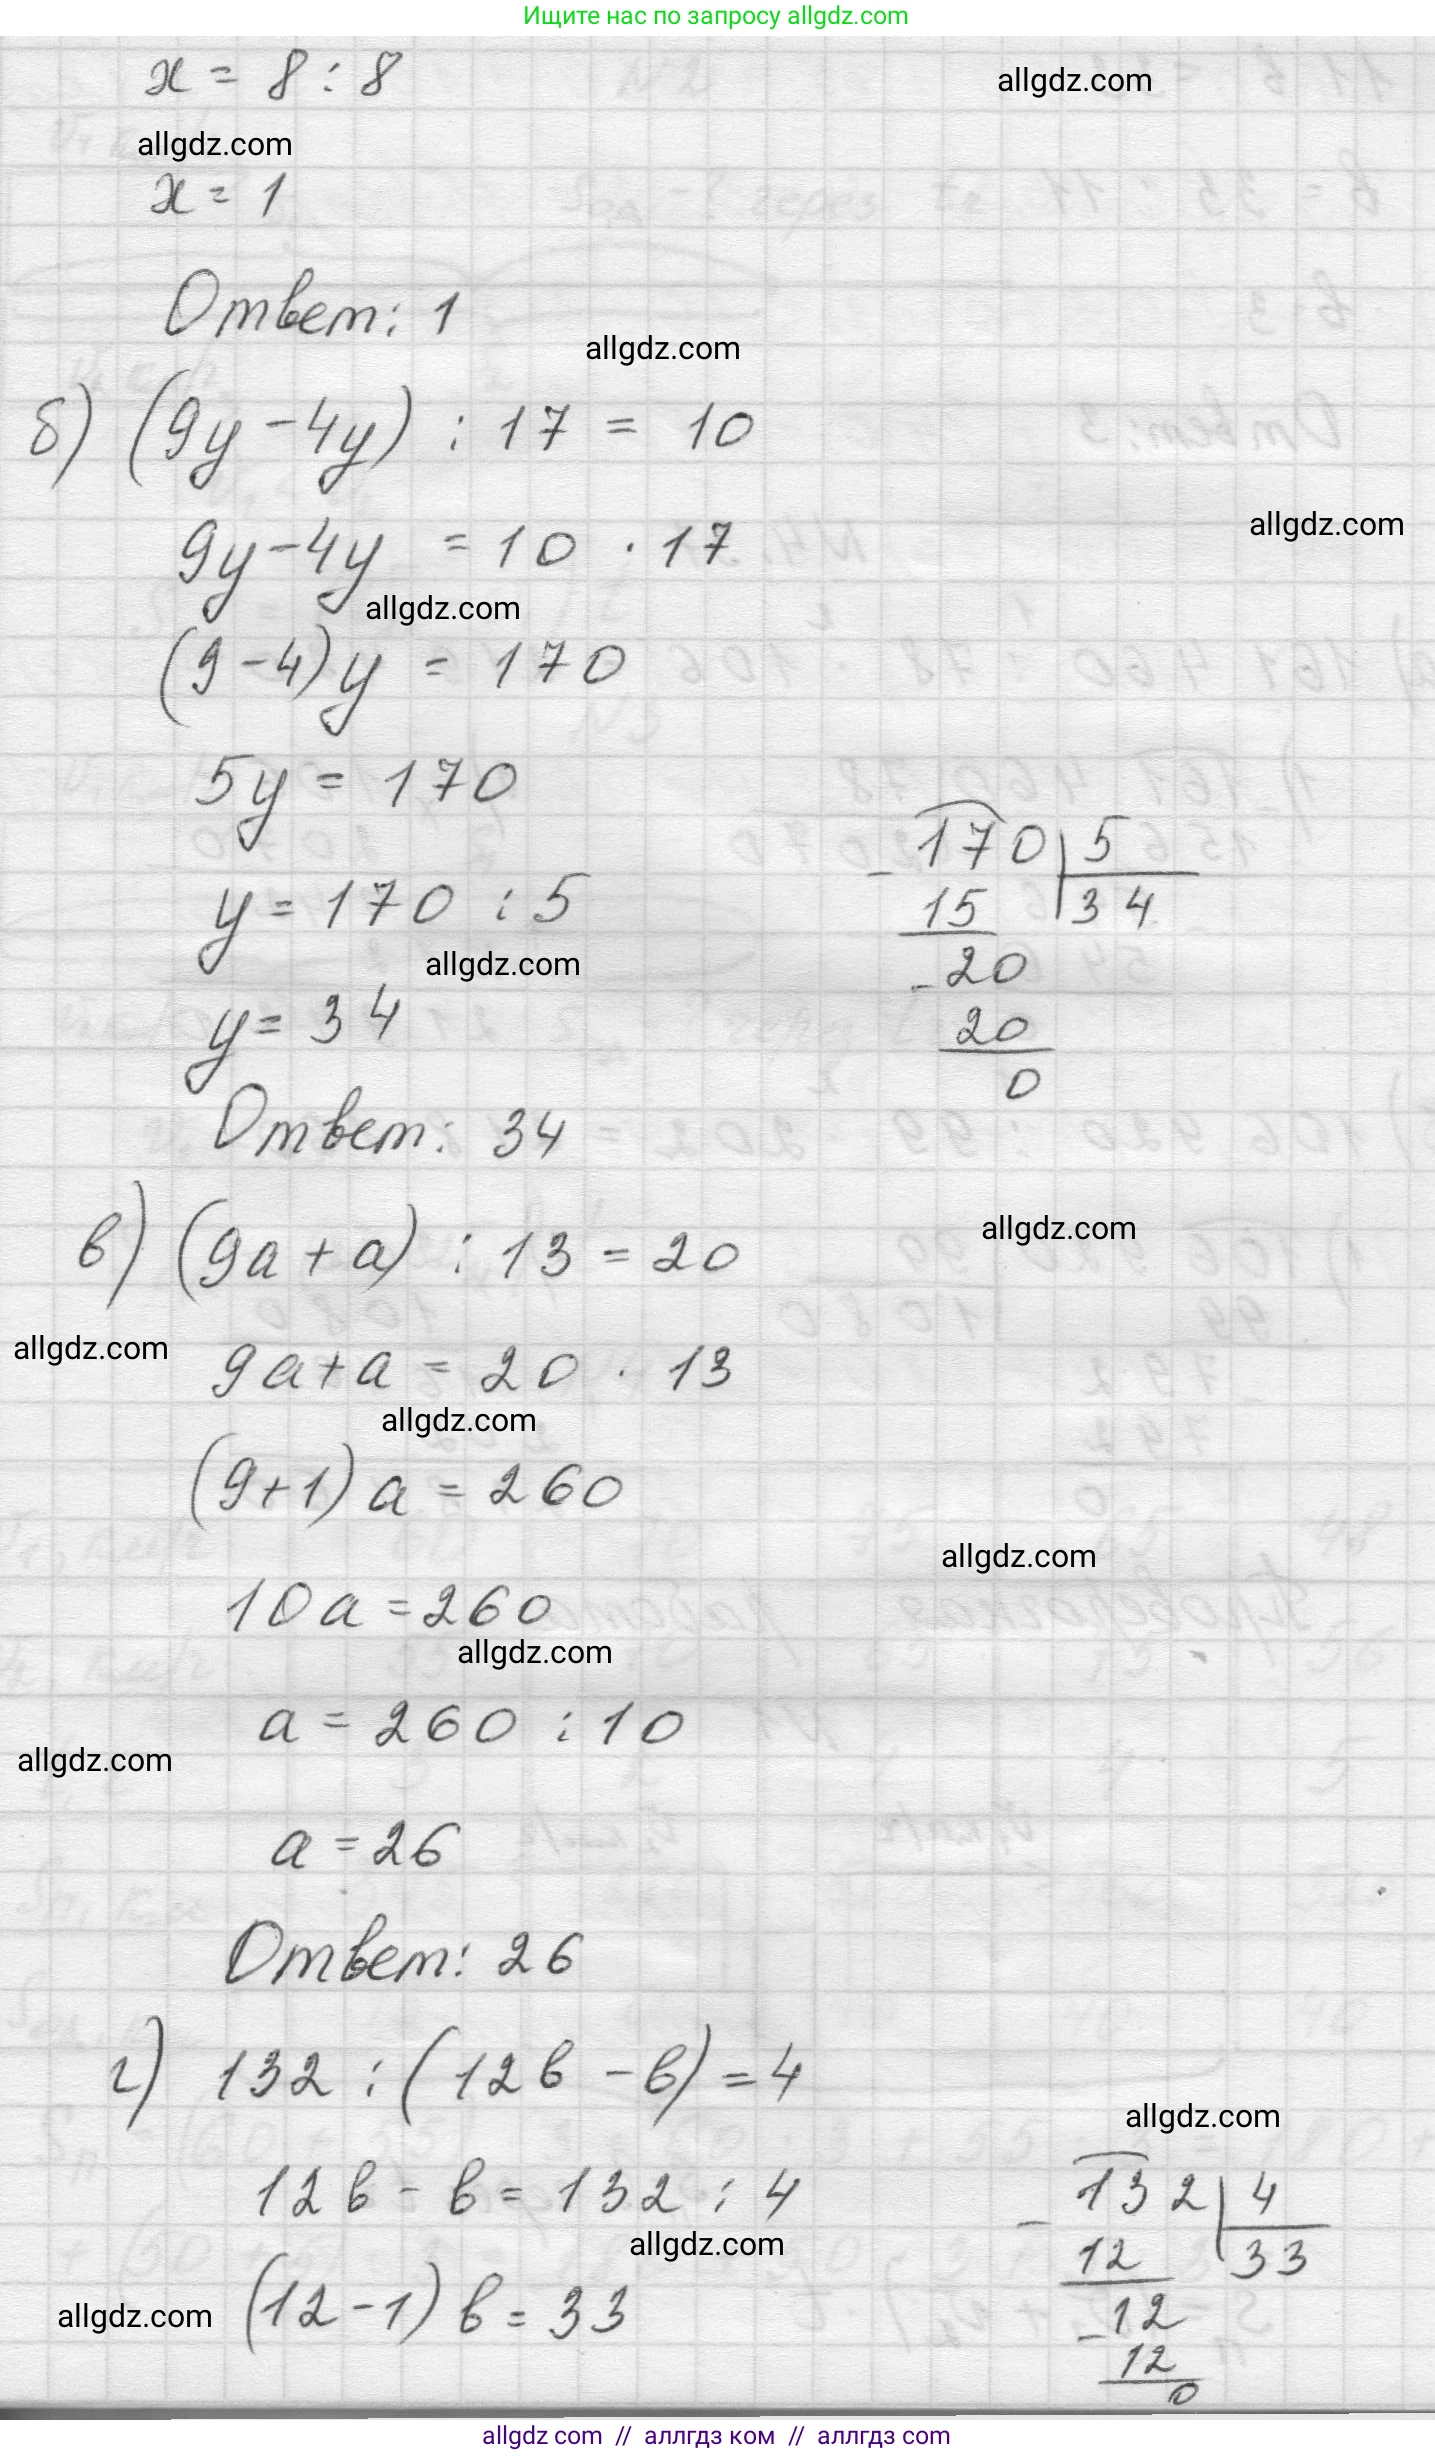 Ищите нас по запросу allgdz.com
x = 8 : 8
allgdz.com
allgdz.com
x = 1
Ответ: 1
allgdz.com
б) (9y - 4y) : 17 = 10
allgdz.com
9y - 4y = 10 · 17
allgdz.com
(9 - 4) y = 170
5y = 170
y = 170 : 5
allgdz.com
y = 34
Ответ: 34
- 170 | 5
15 | 34
- 20
20
0
в) (9a + a) : 13 = 20
allgdz.com
allgdz.com
9a + a = 20 · 13
allgdz.com
(9 + 1) a = 260
allgdz.com
10a = 260
allgdz.com
a = 260 : 10
allgdz.com
a = 26
Ответ: 26
г) 132 : (12в - в) = 4
allgdz.com
12в - в = 132 : 4
allgdz.com
allgdz.com
(12 - 1) в = 33
- 132 | 4
12 | 33
- 12
12
0
allgdz.com // аллгдз ком // аллгдз com